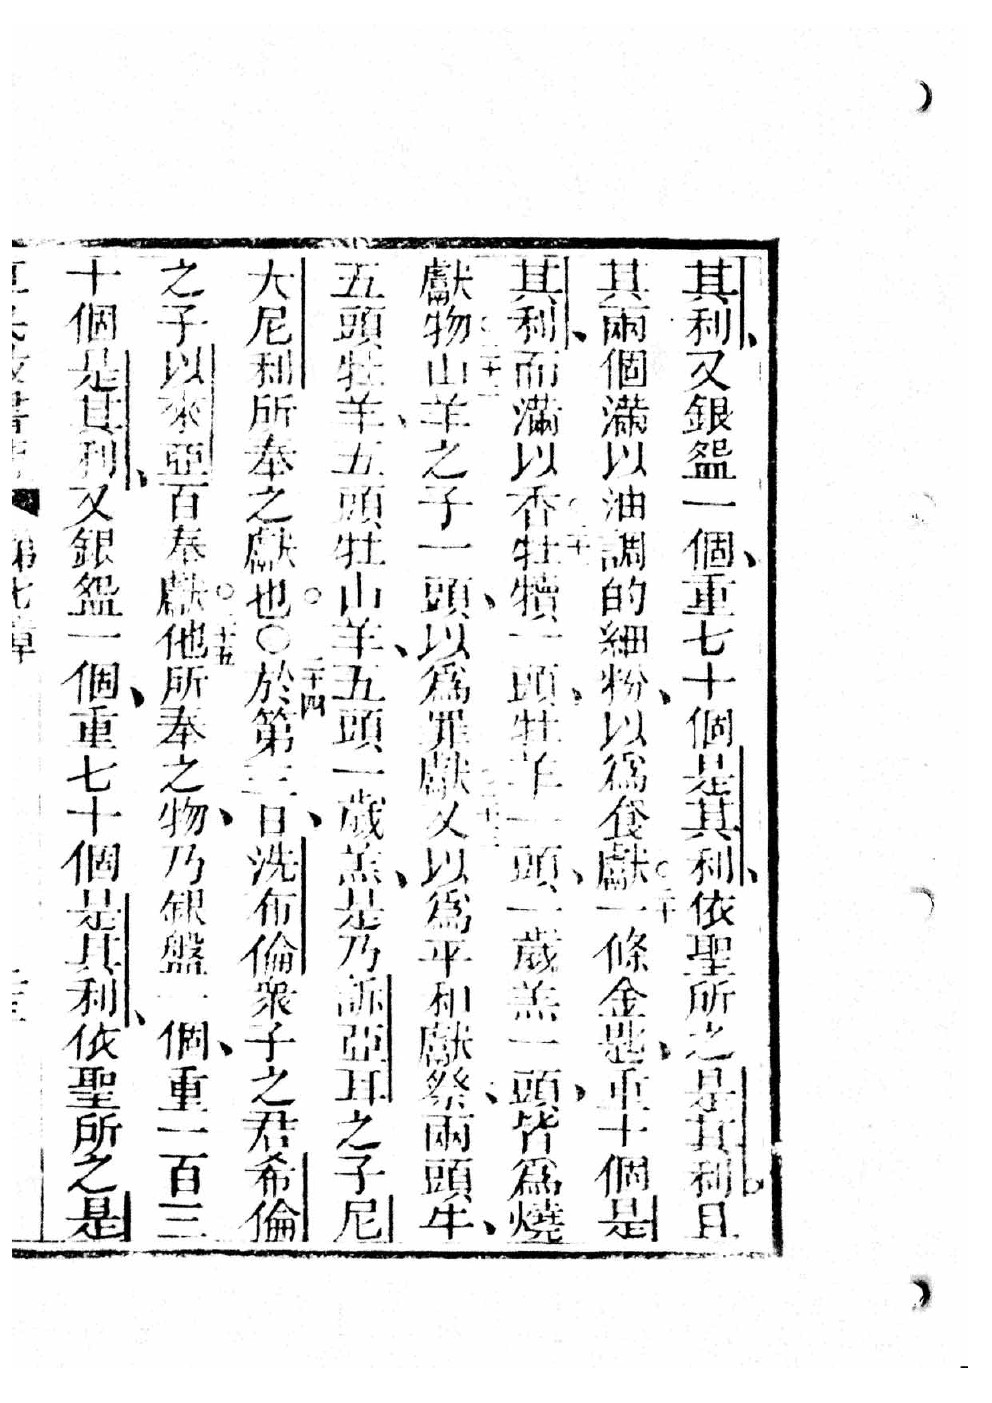 其利、又銀盌一個、重七十個是其利、依聖所之是其利。且
其兩個滿以油調的細粉、以爲食獻○二十一條金匙、重十個是
其利、而滿以香○二十一牡犢一頭、牡羊一頭、一歲羔一頭、皆爲燒
獻物○二十二山羊之子一頭、以爲罪獻○二十三又以爲平和獻祭、兩頭牛、
五頭牡羊、五頭牡山羊、五頭一歲羔、是乃訴亞耳之子尼
大尼利所奉之獻也○○二十四於第三日、洗布倫衆子之君希倫
之子以來亞百奉獻○二十五他所奉之物、乃銀盤一個、重一百三
十個是其利、又銀盌一個、重七十個是其利、依聖所之是
第七章